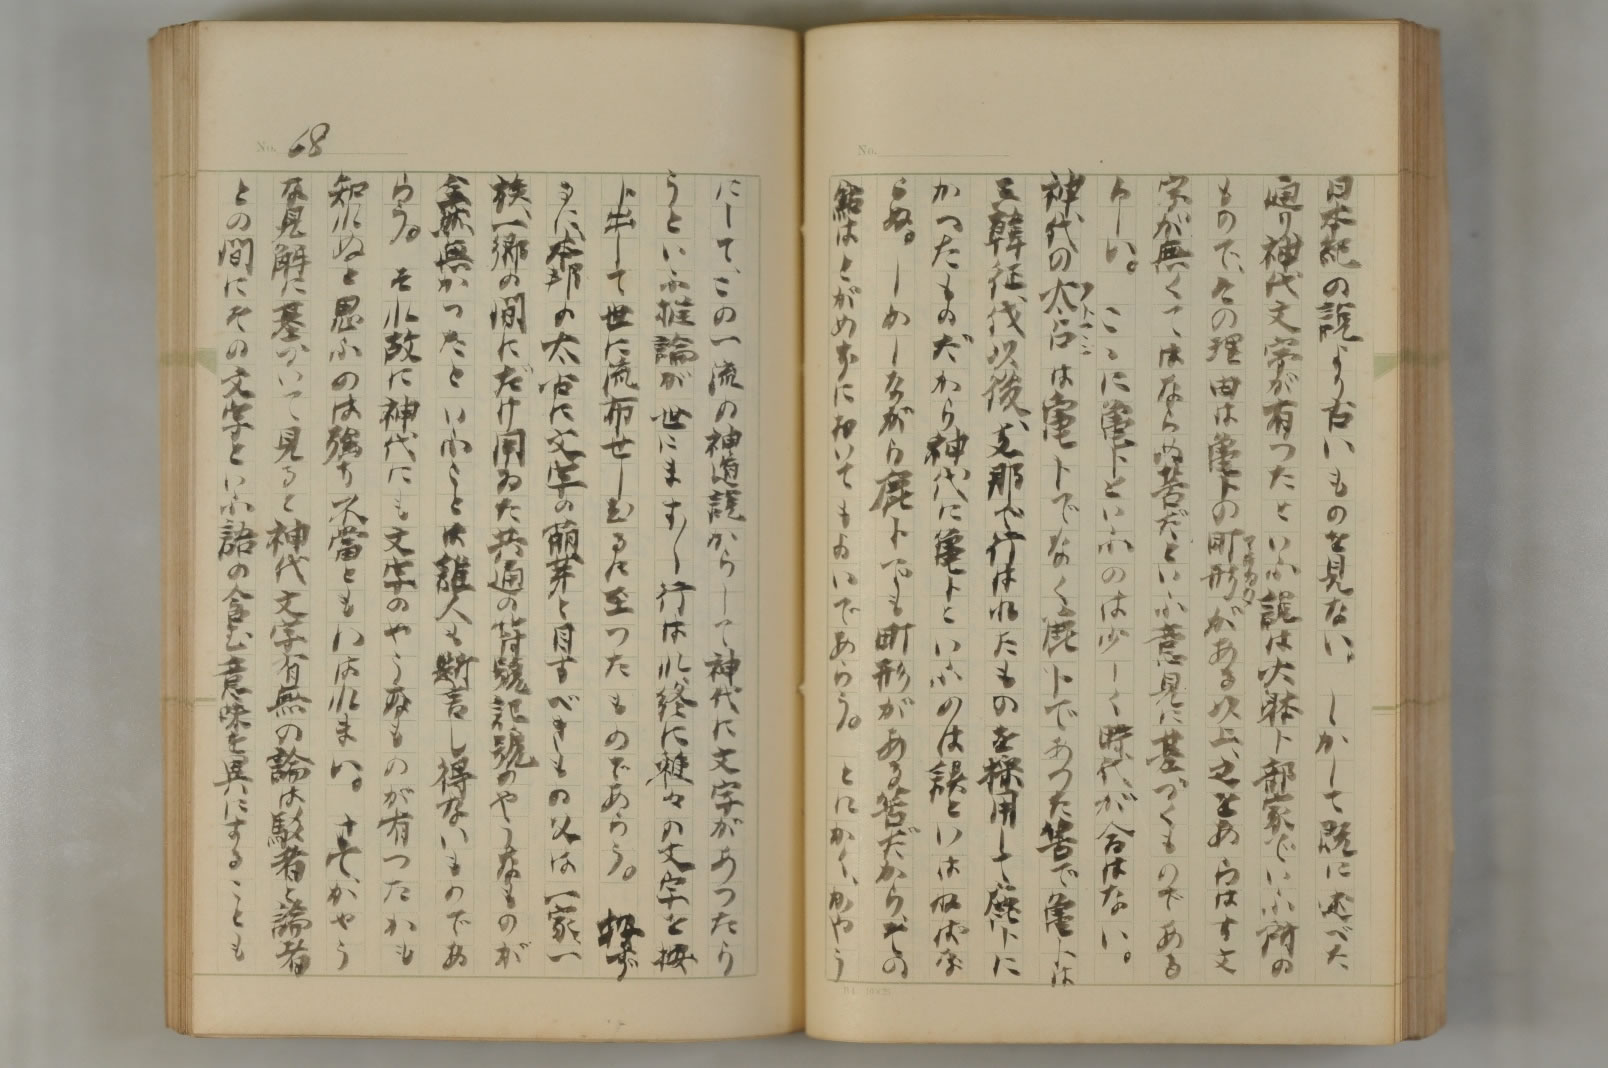 日本紀の説より古いものを見ない。しかして既に述べた
通り神代文字が有つたといふ説は大躰卜部家でいふ所の
もので、その理由は亀卜の町形がある以上、之をあらはす文
マチカタ
字が無くてはならぬ筈だといふ意見に基づくものである
らしい。こゝに亀卜といふのは少しく時代が合はない。
神代の太占は亀卜でなく鹿卜であつた筈で亀卜は
フトマニ
三韓征伐以後、支那で行はれたものを採用して鹿卜に
かへたものだから神代に亀卜といふのは誤といはねばな
らぬ。しかしながら鹿卜でも町形がある筈だからその
點はとがめずにおいてもよいであらう。とにかく、かやう
No. 68
にして、この一流の神道説からして神代に文字があつたら
うといふ推論が世にます／＼行はれ、終に種々の文字を按
じ出して世に流布せしむるに至つたものであらう。按ず
るに本邦の太占に文字の萠芽と目すべきもの又は一家、一
族、一郷の間にだけ用ゐた共通の符號記號のやうなものが
全然無かつたといふことは誰人も斷言し得ないものであ
らう。それ故に神代にも文字のやうなものが有つたかも
知れぬと思ふのは強ち不當ともいはれまい。さて、かやう
な見解に基づいて見ると神代文字有無の論は駁者と論者
との間にその文字といふ語の含む意味を異にすることも
No.